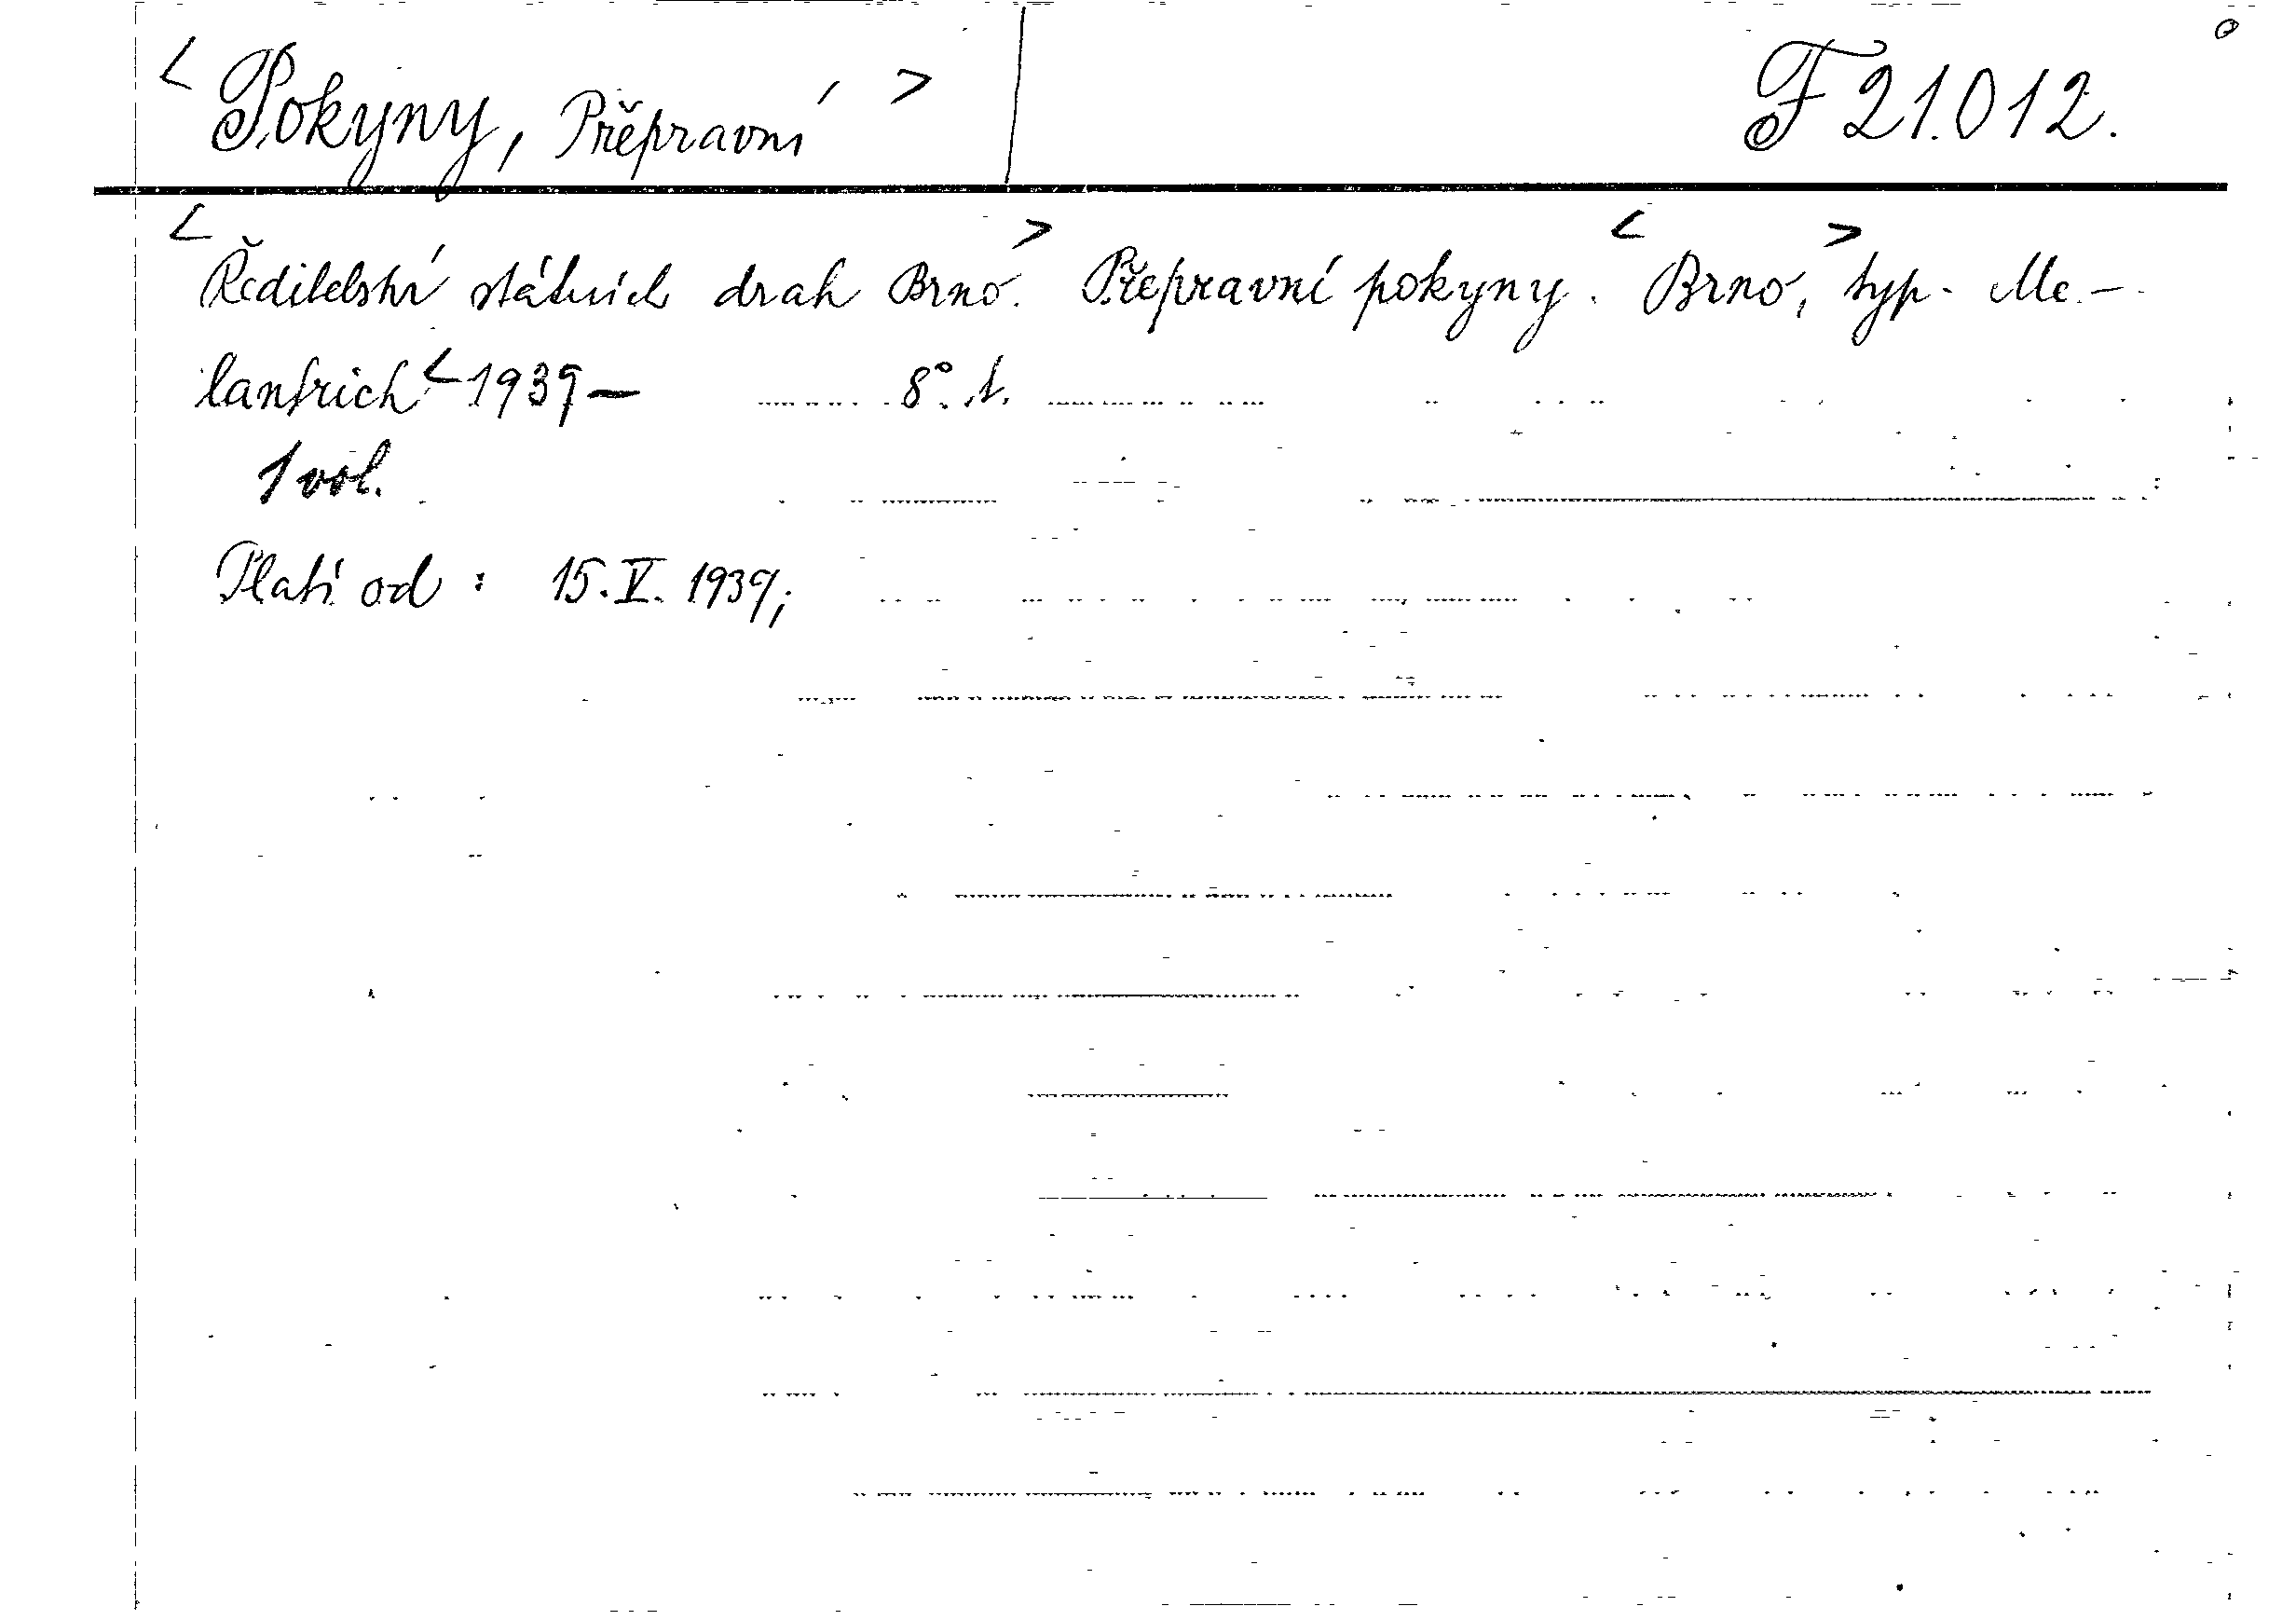 < Pokyny, Přepravní > F 21.012.
< Ředitelství státních drah Brno. > Přepravní pokyny. < Brno, > typ. Me-
lantrich < 1939— 8°. t.
1 vol.
Platí od: 15. V. 1939;